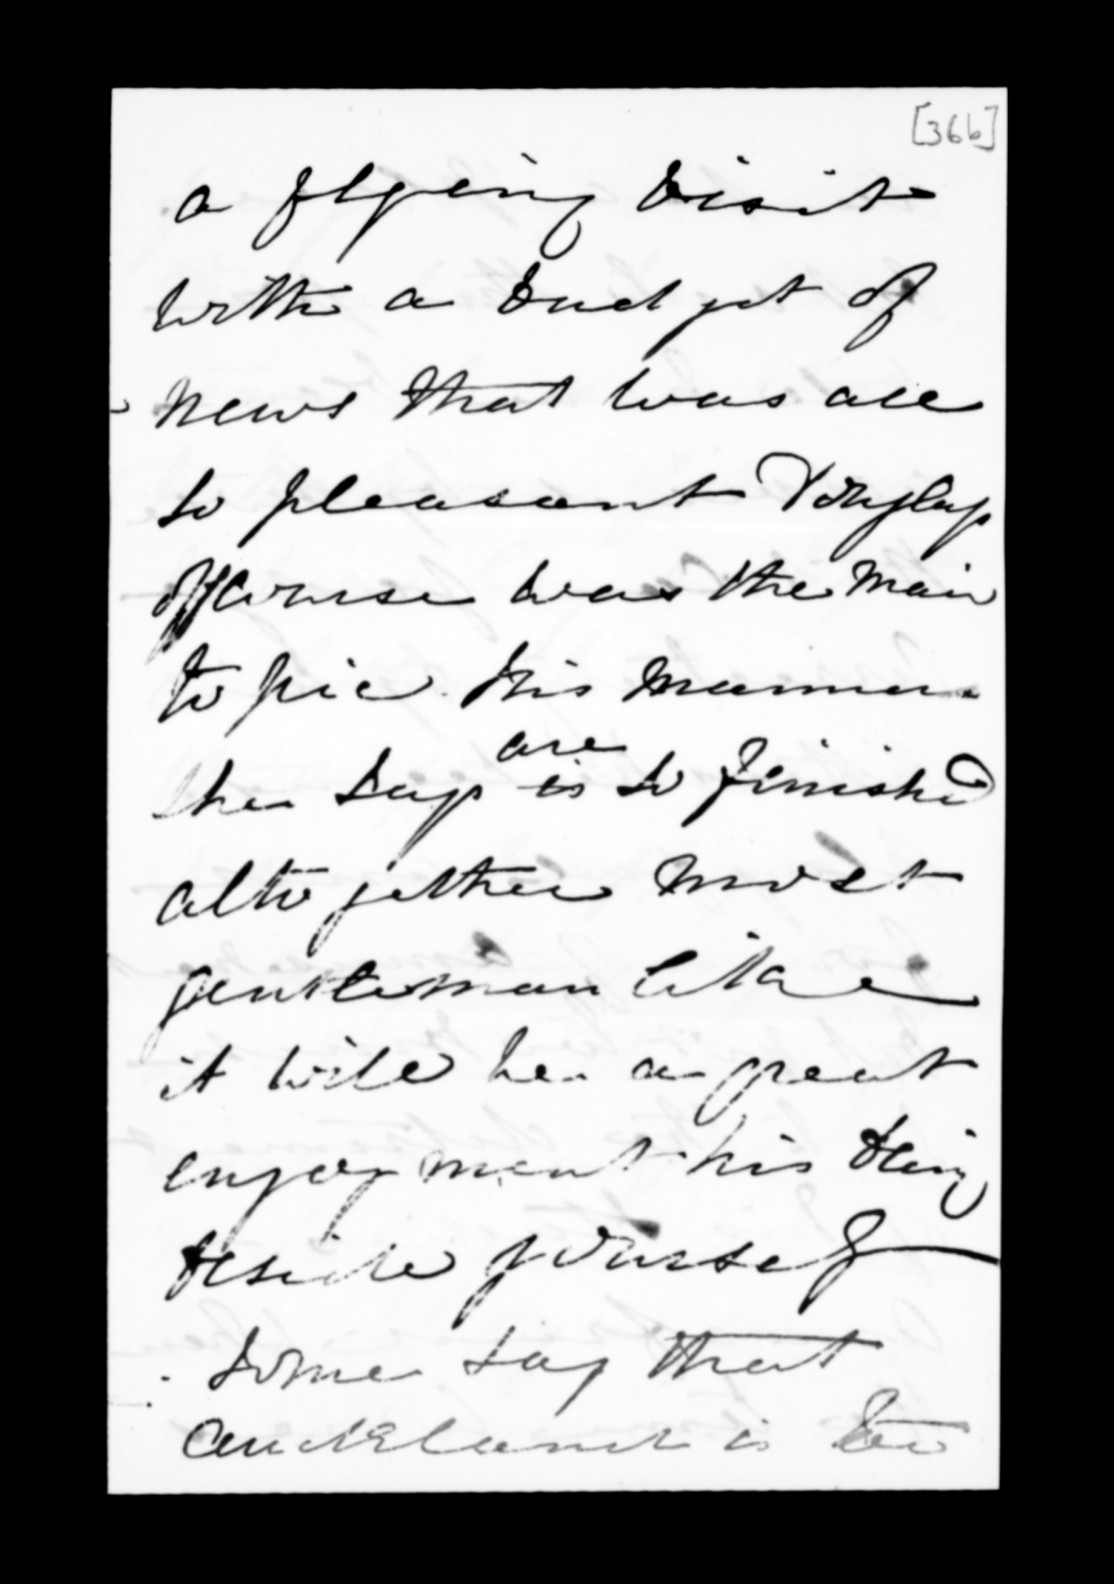 [366]
a flyeing visit
with a budget of
news that was all
so pleasant Douglas
off course was the main
topic his manner
she says are is so finished
altogether most
gentleman like
it will be a great
enjoyment his being
beside yourself
Some say that
Auckland is to